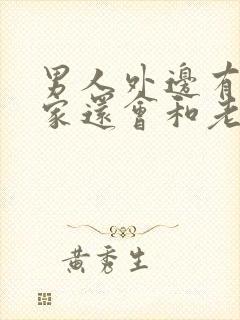 男人外邊有
家還會和老
黃秀生